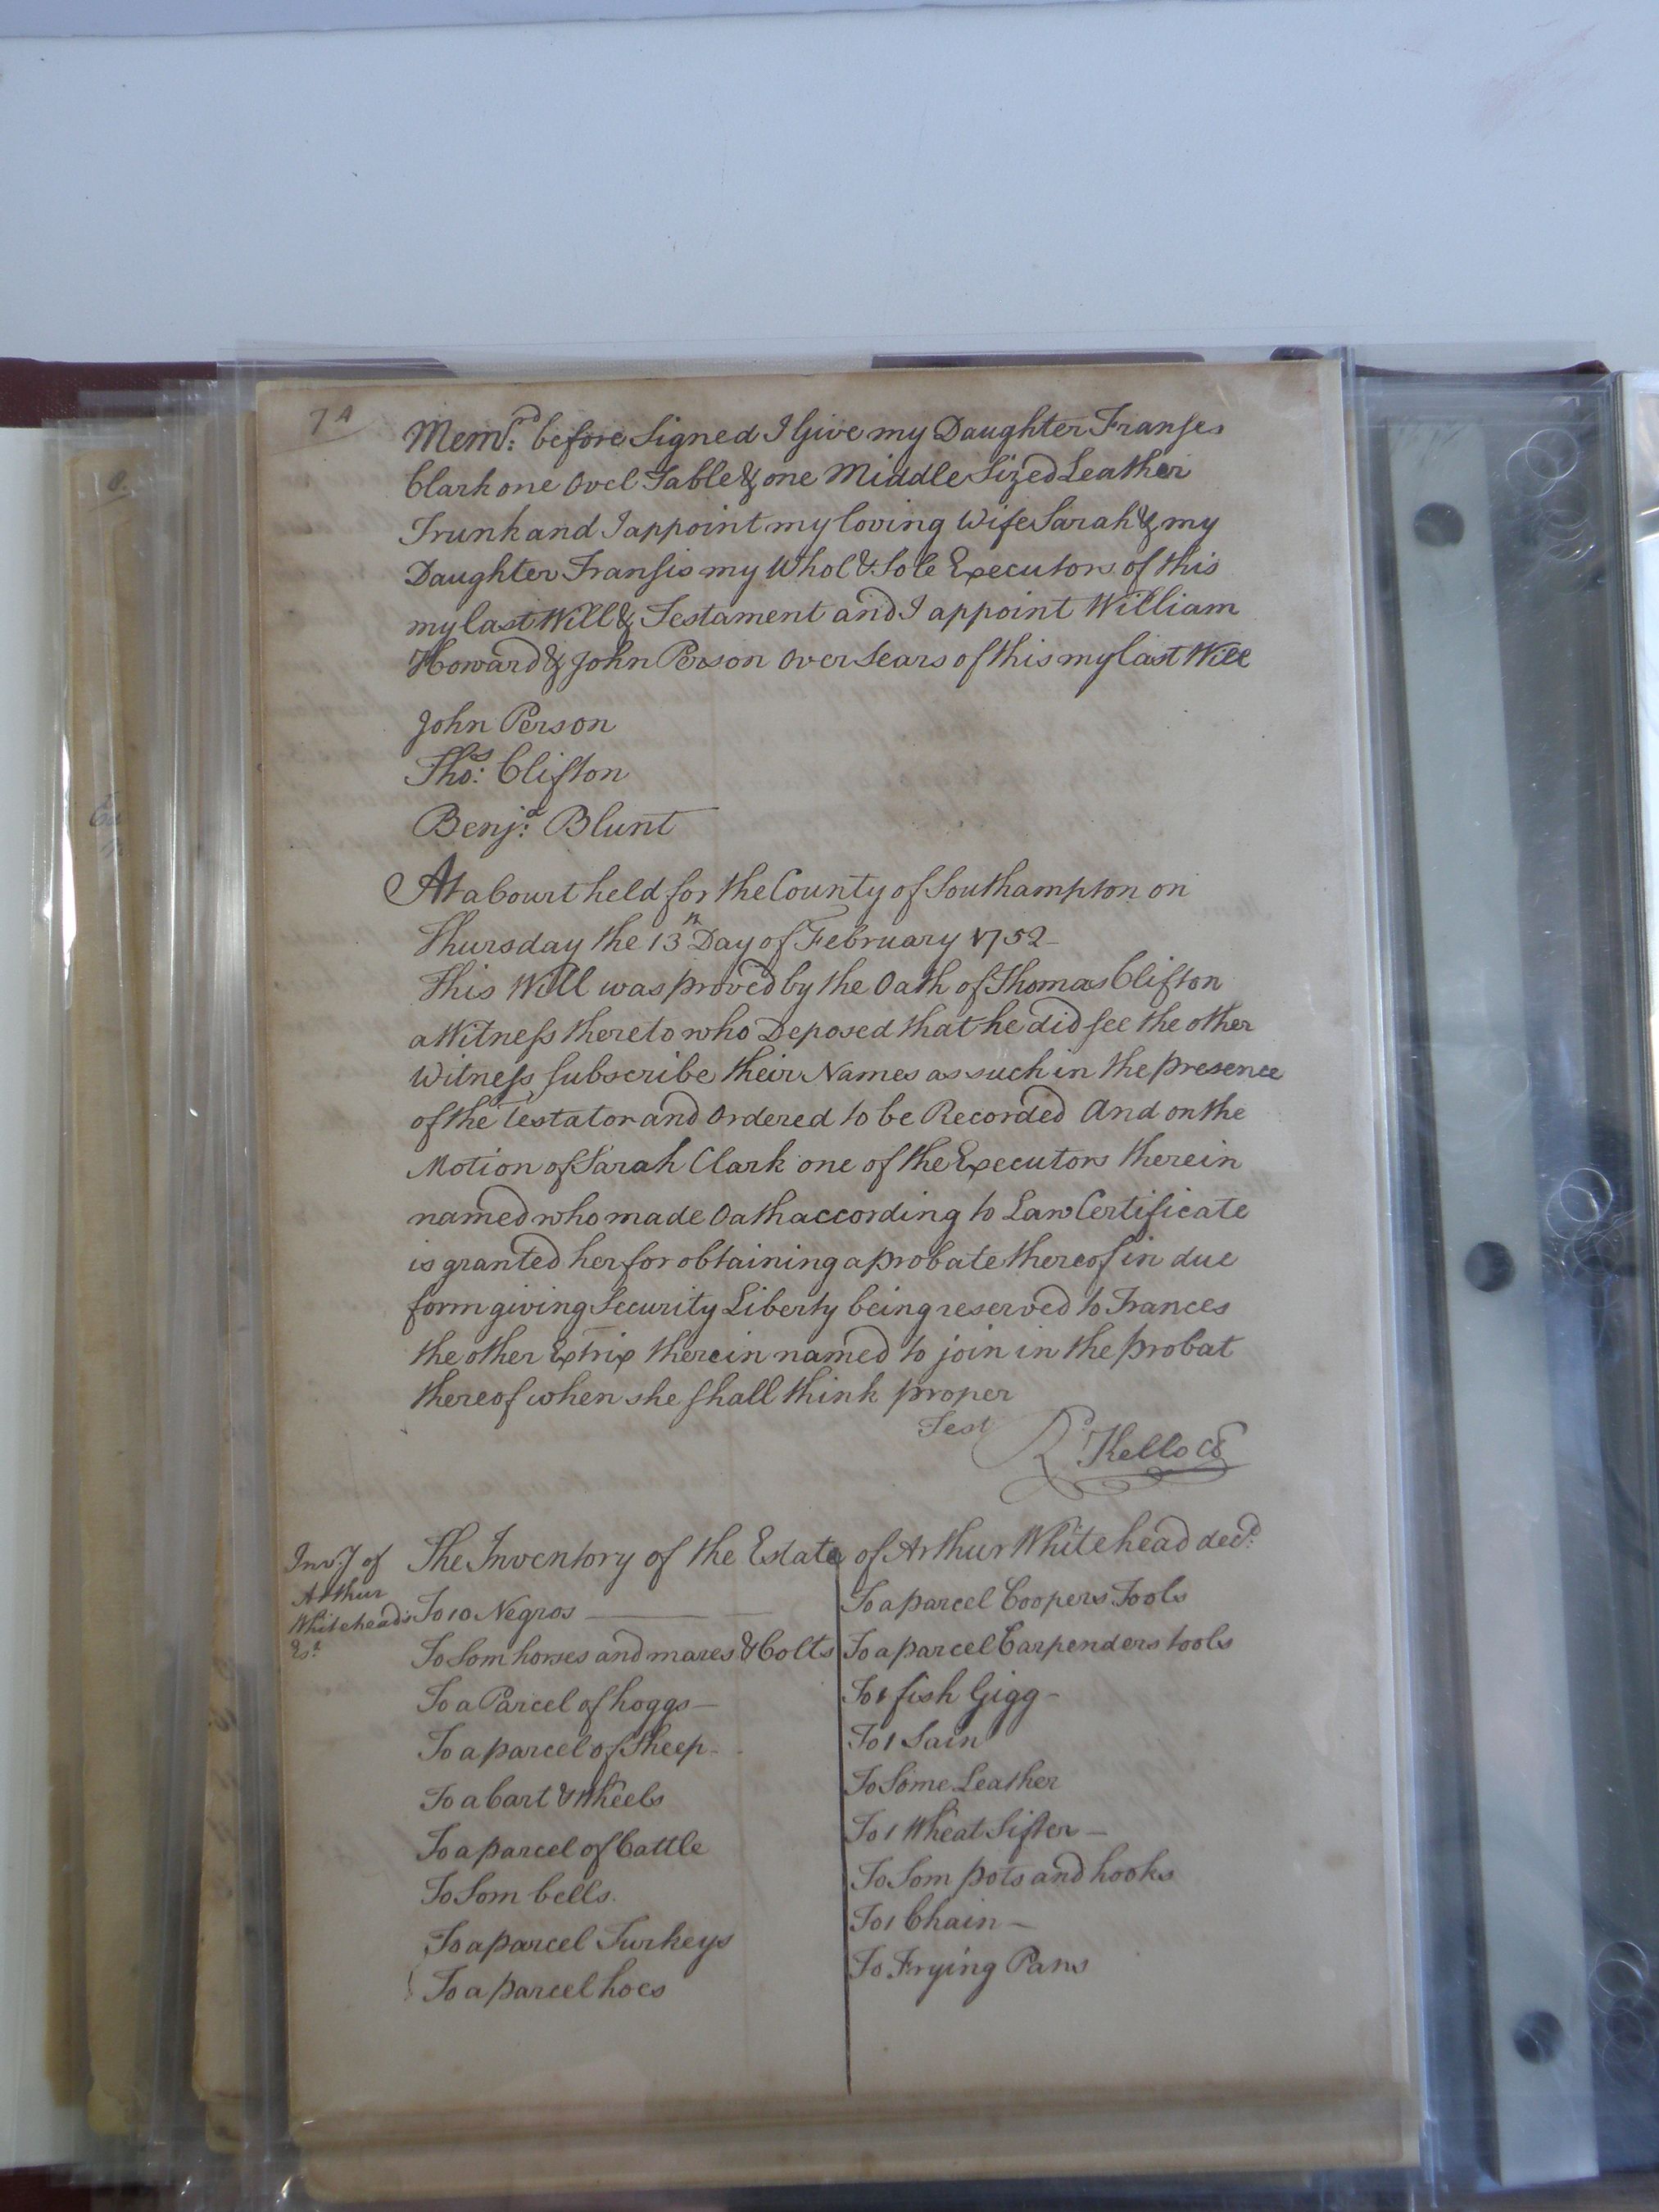 74
Memd: before Signed I Give my Daughter Franses
Clark one Ovel Table & one Middle Sized Leather
Trunk and I appoint my loving Wife Sarah & my
Daughter Fransis my Whol & Sole Executors of this
my last Will & Testament and I appoint William
Howard & John Person Over Sears of this my last Will
John Person
Thos: Clifton
Benja: Blunt
At a Court held for the County of Southampton on
Thursday the 13th Day of February 1752
This Will was proved by the Oath of Thomas Clifton
a Witness thereto who Deposed that he did see the other
Witness subscribe their Names as such in the presence
of the Testator and Ordered to be Recorded And on the
Motion of Sarah Clark one of the Executors therein
named who made Oath according to Law Certificate
is granted her for obtaining a probate thereof in due
form giving Security Liberty being reserved to Frances
the other Extrix therein named to join in the probat
thereof when she shall think proper
Test
R Kello Cl
Invy of
Arthur
Whitehead's
Est
The Inventory of the Estate of Arthur Whitehead decd:
To 10 Negros
To Som horses and mares & Colts
To a Parcel of hoggs
To a parcel of Sheep
To a Cart & Wheels
To a parcel of Cattle
To Som bells
To a parcel Turkeys
To a parcel hoes
To a parcel Coopers Tools
To a parcel Carpenders tools
To 1 fish Gigg
To 1 Sain
To Some Leather
To 1 Wheat Sifter
To Som pots and hooks
To 1 Chain
To Frying Pans